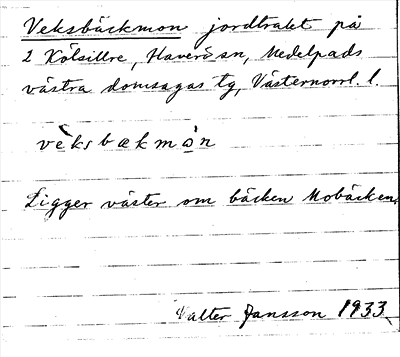 Veksbäckmon jordtrakt på
2 Kölsillre, Haverö sn, Medelpads
västra domsagas tg, Västernorrl. l.
vèksbækmòn
Ligger väster om bäcken Mobäcken.
Valter Jansson 1933